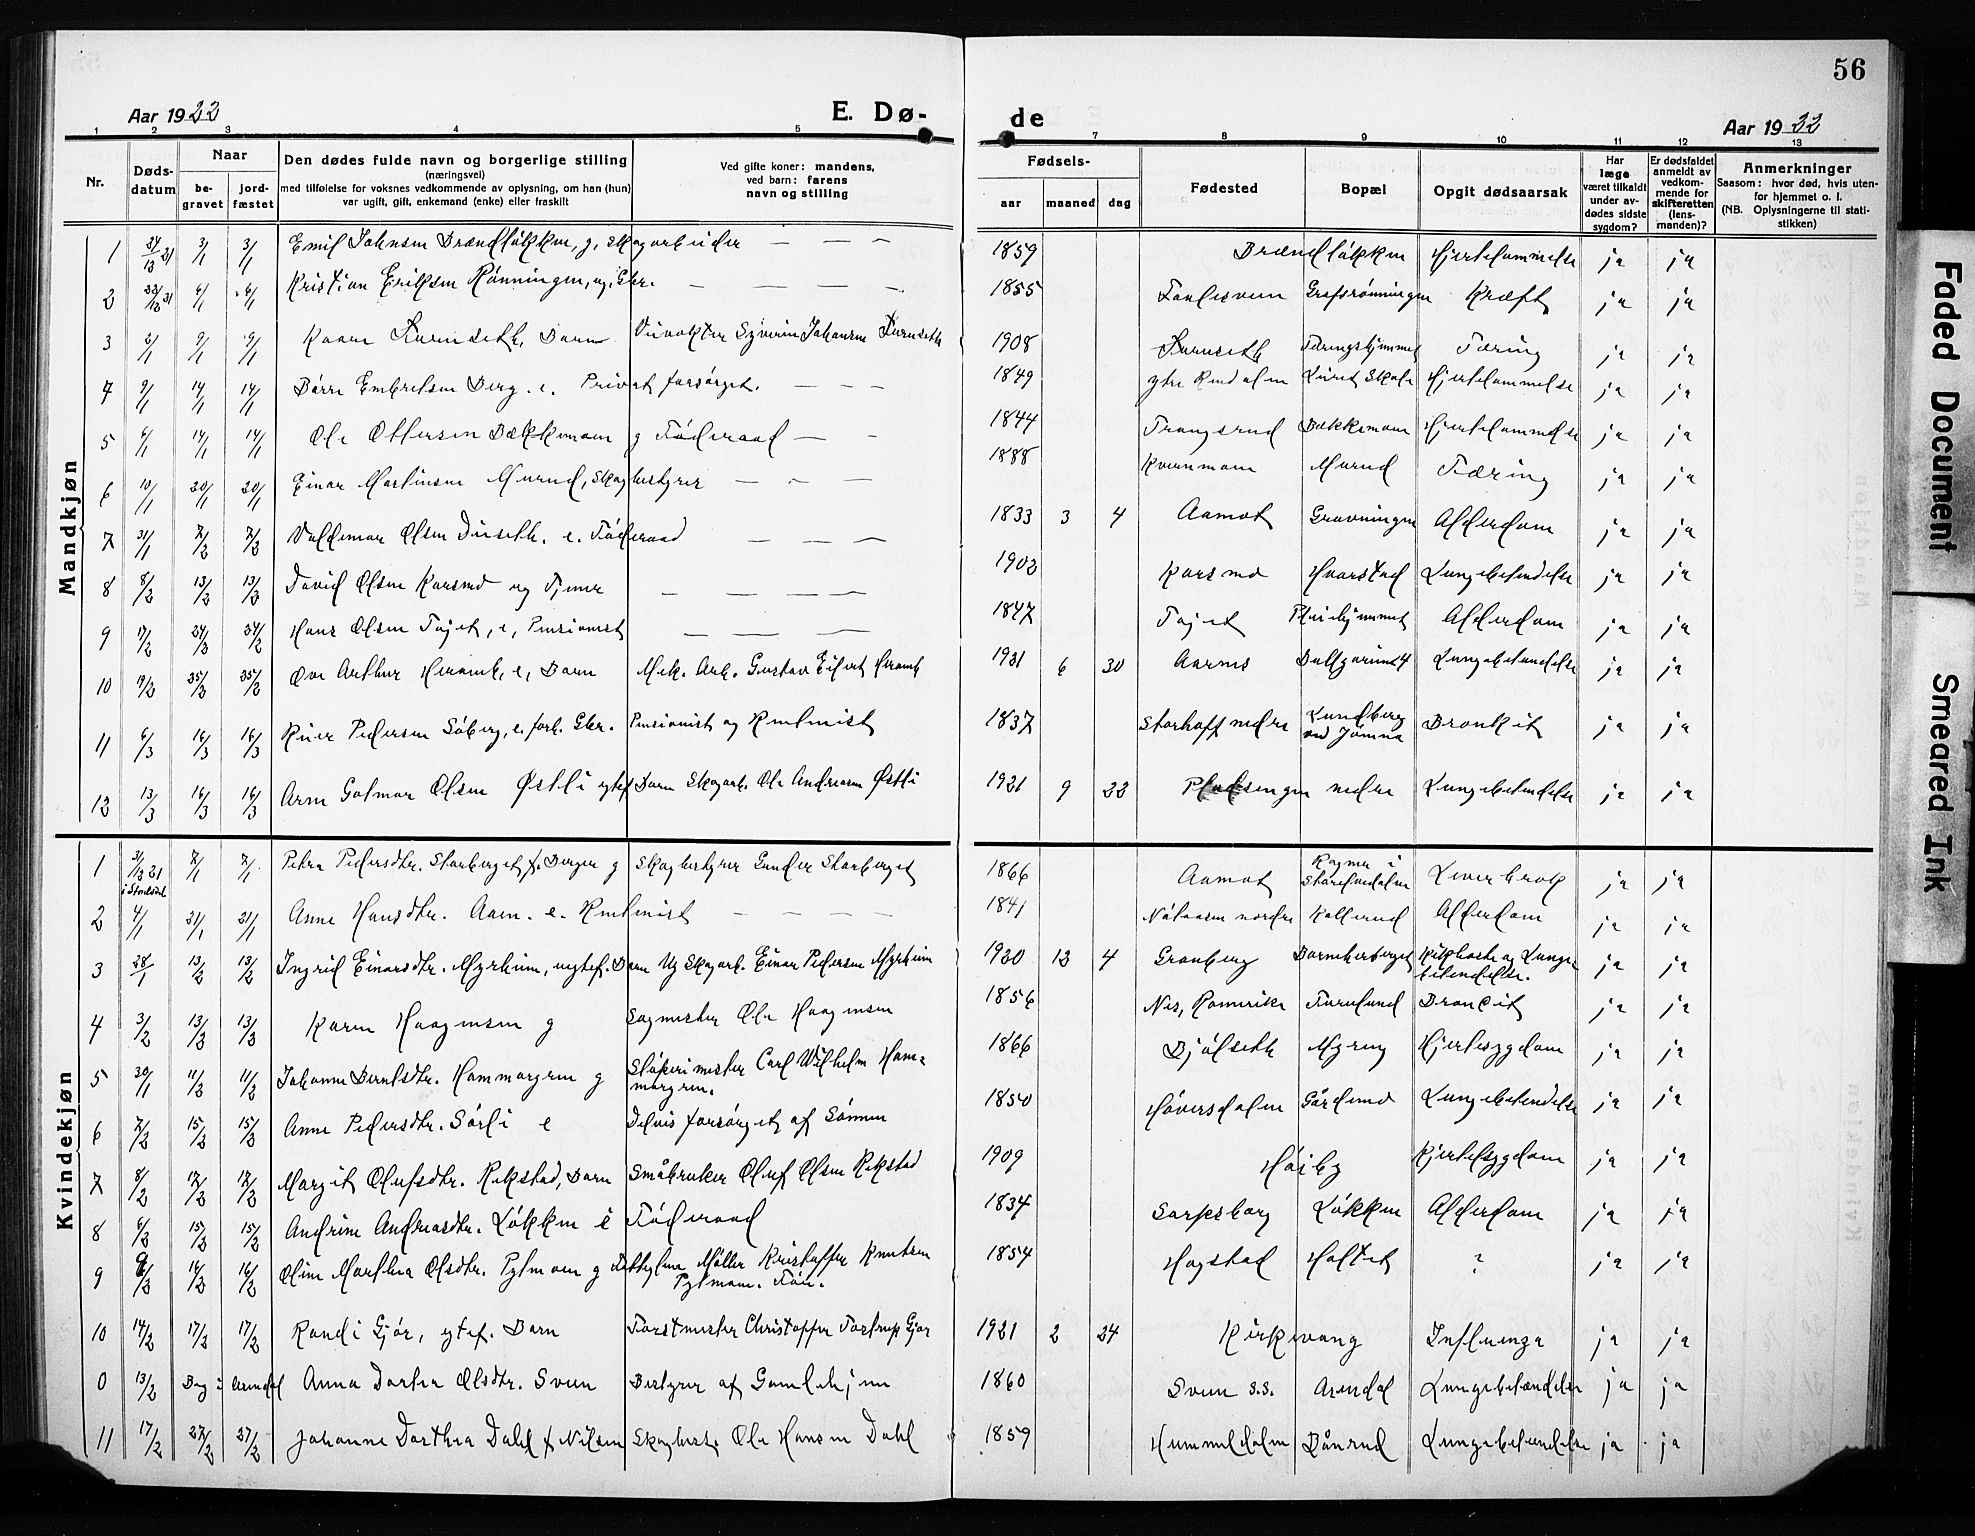 56
Aar 1922
E. Dø-
de
Aar 1922
1 2 3 4 5 7 8 9 10 11 12 13
Nr.
Døds-
datum
Naar
be-
gravet
jord-
fæstet
Den dødes fulde navn og borgerlige stilling
(næringsvei)
med tilføielse for voksnes vedkommende av oplysning, om han (hun)
var ugift, gift, enkemand (enke) eller fraskilt
Ved gifte koner: mandens,
ved barn: farens
navn og stilling
Fødsels-
aar
maaned
dag
Fødested
Bopæl
Opgit dødsaarsak
Har
læge
været tilkaldt
under av-
dødes sidste
sygdom?
Er dødsfaldet
anmeldt av
vedkom-
mende for
skifteretten
(lens-
manden)?
Anmerkninger
Saasom: hvor død, hvis uten-
for hjemmet o. l.
(NB. Oplysningerne til stati-
stikken)
Mandkjøn
1 3/1 3/1 Emil Johnsen Brændløkken, g, skogarbeider — — — 1859 Brændløkken Hjertelammelse ja ja
2 6/1 6/1 Kristian Eriksen Rønningen, ug, Gbr. — — — — 1855 Grafsrønningen Kræft ja ja
3 2/1 9/1 9/1 Kaare Furuseth, Barn Syverin Johansen Furuseth 1908 Furuseth Tæringshjemmet Tæring ja ja
9/1 14/1 14/1 Børre Embretsen Berg. e. Privat forsørget. — — — 1849 Hjertelammelse ja ja
5 6/1 14/1 14/1 Ole Ottersen Bækkemoen g Føderaad — — 1844 Trangsrud Bækkemoen Hjertelammelse ja ja
6 10/1 20/1 20/1 Einar Martinsen Murud, Skogbestyrer — — — 1888 Kvernmoen Murud Tæring ja ja
7 31/1 7/2 7/2 Valdemar Olsen Diseth. e. Føderaad — — — 1833 3 4 Aamot Gravningen Alderdom ja ja
8 8/2 13/2 13/2 David Olsen Karsmo ug Tjener — — — 1902 Karsmo Hvarstad Lungebetendelse ja ja
9 17/2 24/2 24/2 Hans Olsen Tajet, e, Pensionist — — — 1847 Tajet Pleiehjemmet Alderdom ja ja
10 19/2 25/2 25/2 Ove Arthur e, Barn Mek. Arb. Gustav 1921 6 30 Lungebetendelse ja ja
11 6/3 16/3 16/3 Peder​sen Søberg, e. forh. Gbr. Pensionist og Rentenist 1837 Storhoff nedre Lundberg
ved Jømna Bronkit ja ja
12 13/3 16/3 16/3 Arne Gotmar Olsen Østli egtef Barn Skogarb. Ole Andreasen Østli 1921 9 22 Pladsengen nedre Lungebetendelse ja ja
Kvindekjøn
1 7/1 7/1 Petra Pedersdtr. Storberget f. Berger g Skogbestyrer Gunder Storberget 1866 Aamot
Storelvdalen ja ja
2 4/1 21/1 21/1 Anne Hansdtr. Aaen. e. Rentenist — — — — 1841 nordre Kallerud Alderdom ja ja
3 28/1 13/2 13/2 Ingrid Einarsdtr. Myrheim, uegtef. Barn Ug Skogarb. Einar Pedersen Myrheim 1920 12 4 Granberg Kikhoste og Lunge-
betendelse. ja ja
4 3/2 13/2 13/2 Karen Haagensen g Sagmester Ole Haagensen 1856 Nes, Romerike Furulund Bronkit ja ja
5 30/1 11/2 11/2 Johanne Berntsdtr. Hammargren g Støperimester Carl Wilhelm Ham-
margren. 1866 Bjølseth Myren Hjertesygdom ja ja
6 7/2 15/2 15/2 Anne Pedersdtr. Sørli e Delvis forsørget af Sønnen 1850 Høversdalen Gårdemo Lungebetendelse ja ja
7 8/2 17/2 17/2 Margit Olufsdtr. Rekstad, Barn Småbruker Oluf Olsen Rekstad 1909 Høiby Hjertesygdom ja ja
8 6/2 15/2 15/2 Andrine Andreasdtr. Løkken e Føderaad 1834 Sarpsborg Løkken Alderdom ja ja
9 16/2 16/2 Oline Marthea Olsdtr. Pytmoen g Møller Kristoffer Knutsen
Pytmoen. 1854 Hagstad Holtet ? ja ja
10 14/2 17/2 17/2 Randi Gjør, egtef. Barn Forstmester Christoffer Fostrup Gjør 1921 2 24 Kirkevang Influenza ja ja
0 13/2 Beg i Arendal Anna Dortea Olsdtr. Sveen Bestyrer af Gamlehjem 1860 Sveen s.s. Arendal Lungebetændelse ja ja
11 17/2 27/2 27/2 Johanne Dorthea Dahl f Nilsen Skogbest. Ole Hansen Dahl 1859 Hummeldalen Bånrud Lungebetendelse ja ja
Faded Document
Smeared Ink